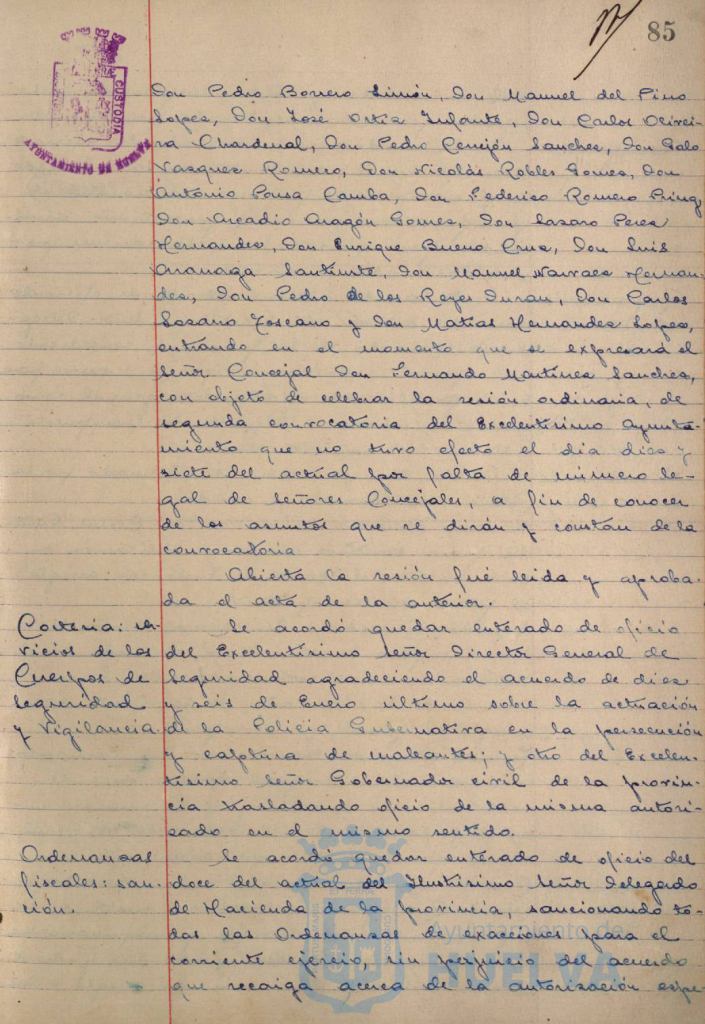 85
CUSTODIA
Don Pedro Borrero Simón, Don Manuel del Pino
Lopez, Don José Ortiz Infante, Don Carlos Olivei-
ra Chardenal, Don Pedro Cerrejón Sanchez, Don Galo
Vazquez Romero, Don Nicolás Robles Gomez, Don
Antonio Pousa Camba, Don Federico Romero
Don Arcadio Aragón Gomez, Don Lazaro Perez
Hernandez, Don Enrique Bueno Cruz, Don Luis
Don Manuel Narvaez Hernan-
dez, Don Pedro de los Reyes Duran, Don Carlos
Lozano Toscano y Don Matías Hernandez Lopez,
entrando en el momento que se expresará el
Señor Concejal Don Fernando Martínez Sanchez,
con objeto de celebrar la sesión ordinaria, de
segunda convocatoria del Excelentísimo Ayunta-
miento que no tuvo efecto el dia diez y
siete del actual por falta de número le-
gal de Señores Concejales, a fin de conocer
de los asuntos que se dirán y constan de la
convocatoria
Abierta la sesión fué leida y aproba-
da el acta de la anterior.
Cortesia: ser-
vicios de los
Cuerpos de
Seguridad
y Vigilancia.
Se acordó quedar enterado de oficio
del Excelentísimo Señor Director General de
Seguridad agradeciendo el acuerdo de diez
y seis de Enero último sobre la actuación
de la Policia Gubernativa en la persecución
y captura de maleantes; y otro del Excelen-
tísimo Señor Gobernador civil de la provin-
cia trasladando oficio de la misma autori-
zado en el mismo sentido.
Ordenanzas
fiscales: san-
ción.
Se acordó quedar enterado de oficio del
doce del actual del Ilustrísimo Señor Delegado
de Hacienda de la provincia, sancionando to-
das las Ordenanzas de exacciones para el
corriente ejercio, sin perjuicio del acuerdo
que recaiga acerca de la autorización espe-
Ayuntamiento de
HUELVA